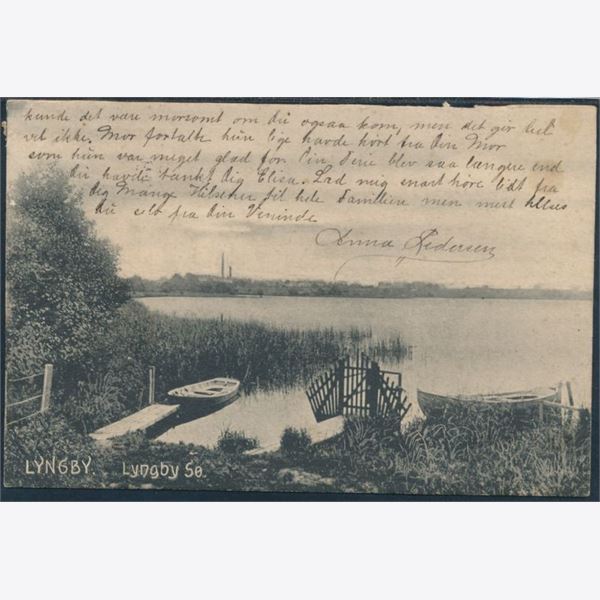 kunde det være morsomt om du ogsaa kom, men det gør I vel
vel ikke. Mor fortalte hun lige havde hørt fra din Mor
som hun var meget glad for. Din Ferie blev saa længere end
du havde tænkt dig Elisa. Lad mig snart høre lidt fra
dig Mange Hilsener til hele Familien men mest hilses
du selv fra din Veninde
Anna Pedersen
LYNGBY. Lyngby Sø.